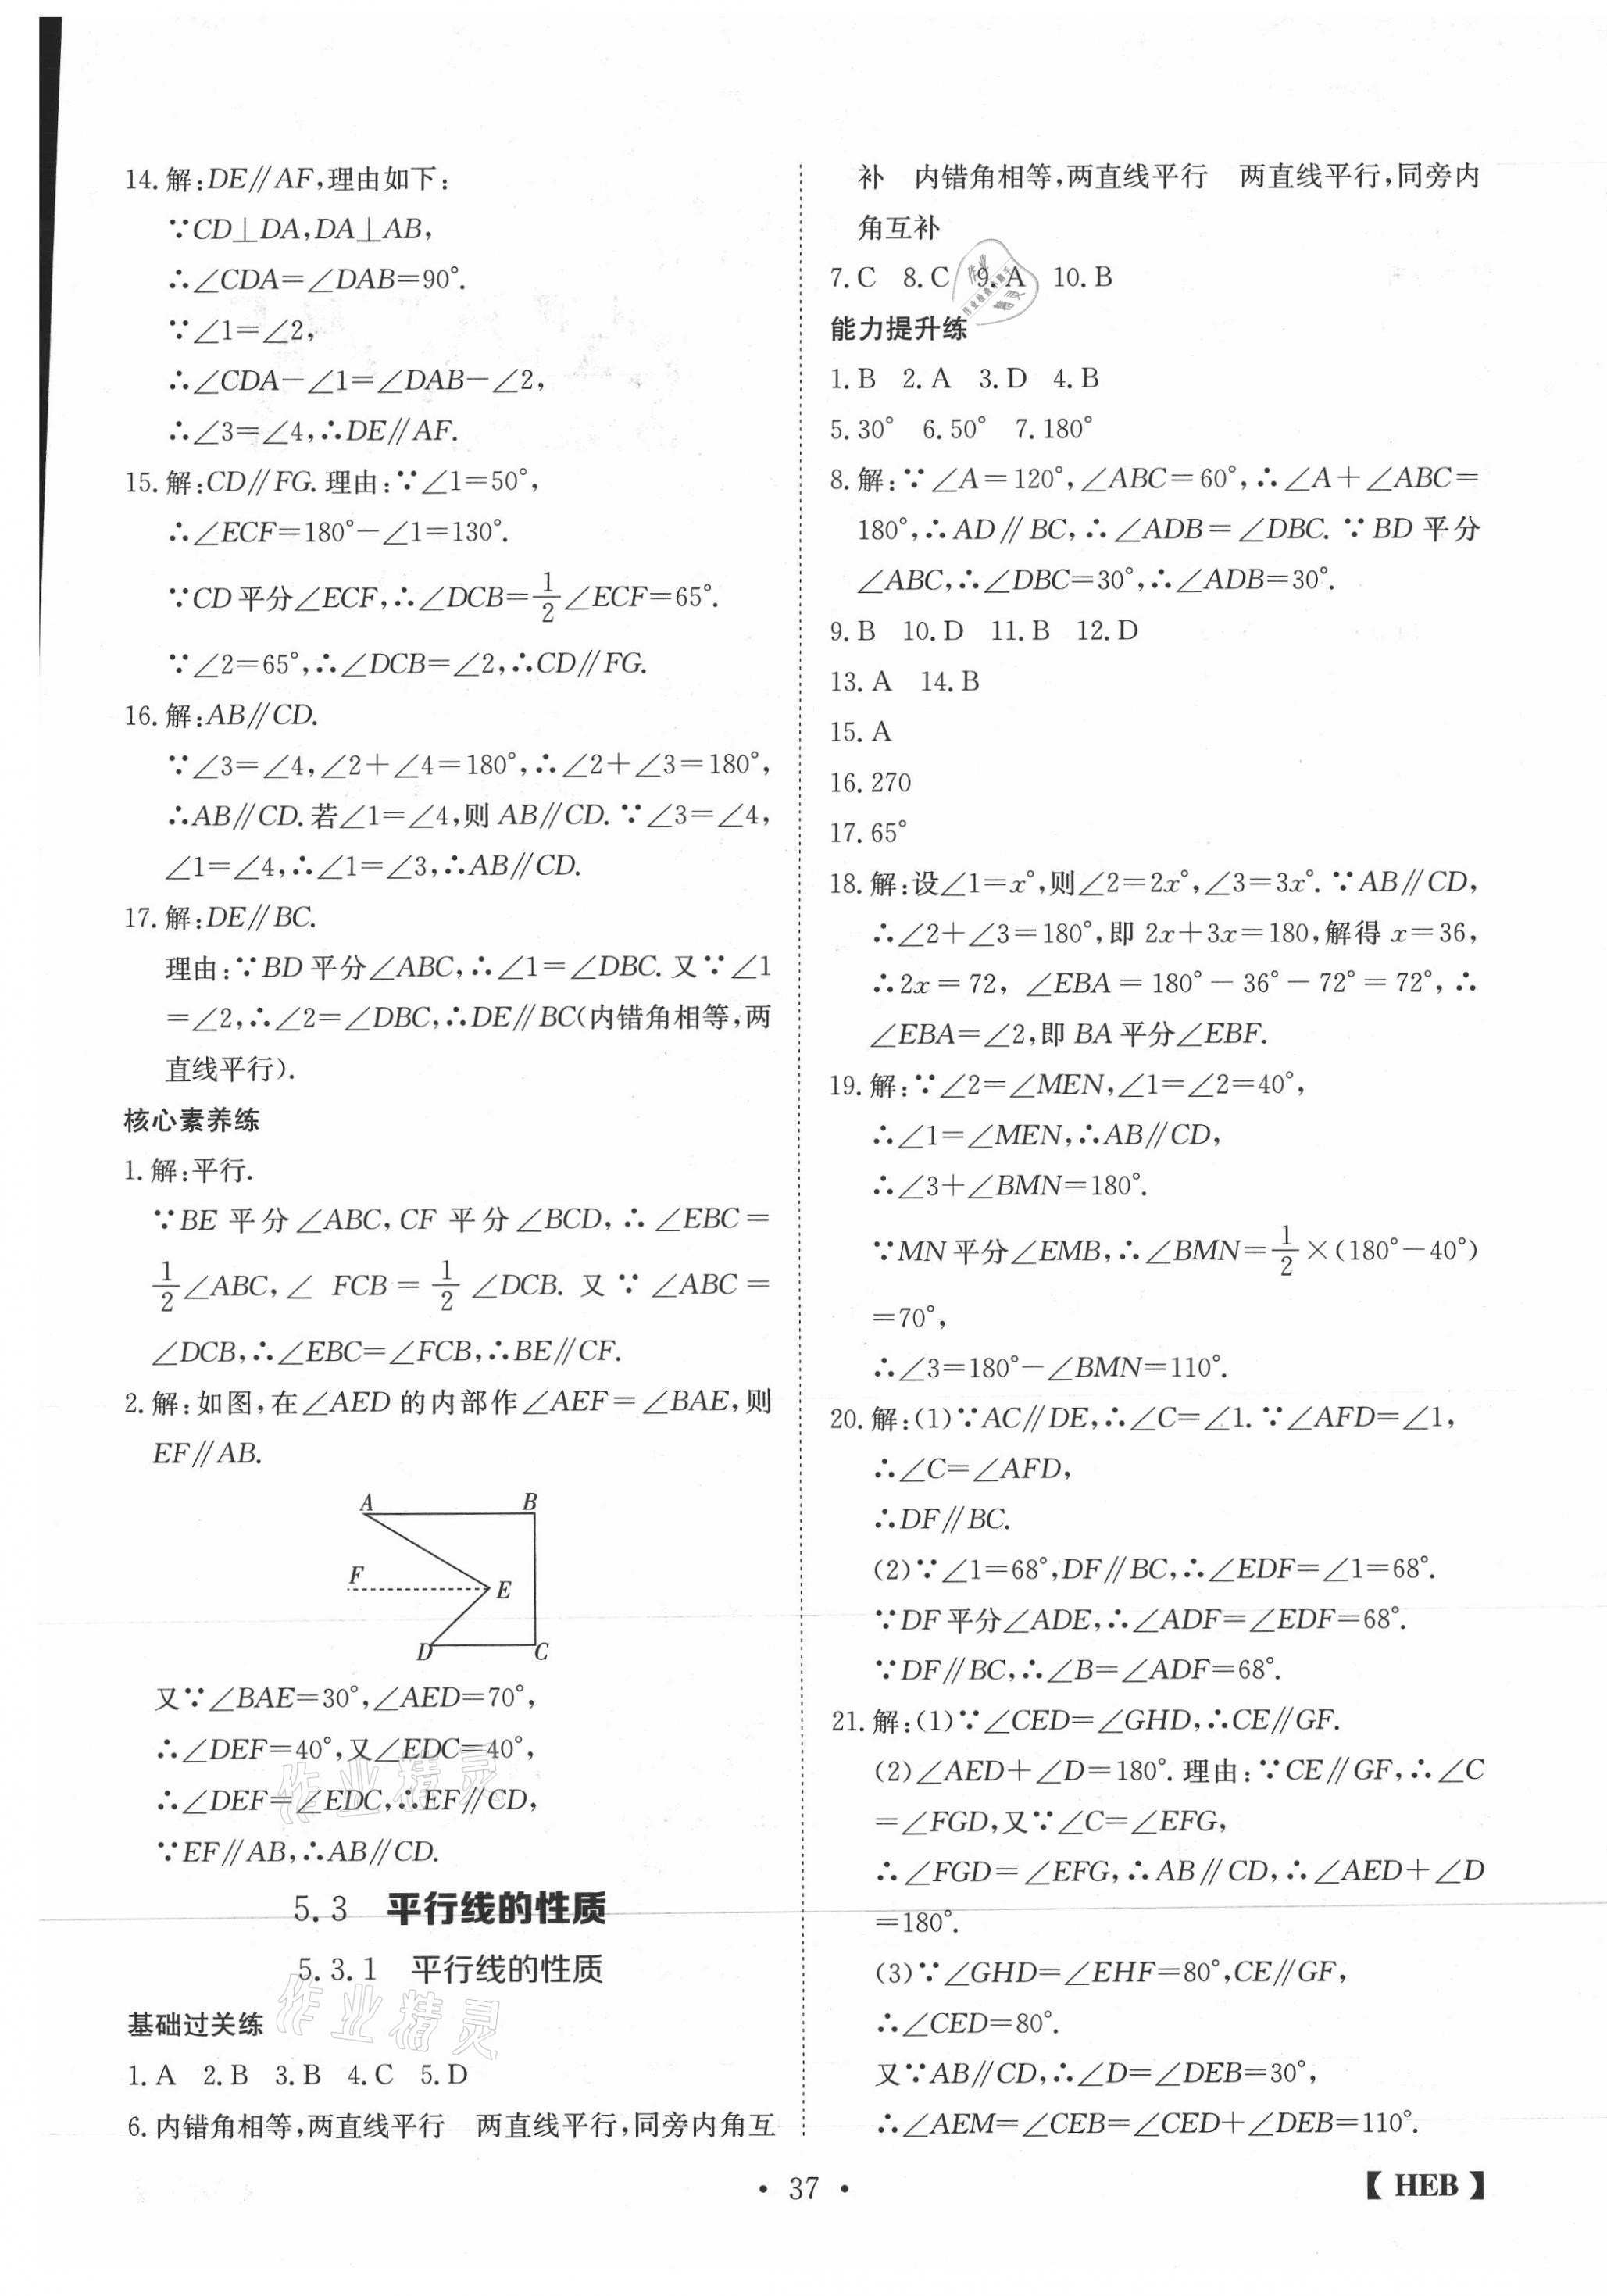 14. 解:DE∥AF,理由如下:
∵CD⊥DA,DA⊥AB,
∴∠CDA=∠DAB=90°.
∵∠1=∠2,
∴∠CDA-∠1=∠DAB-∠2,
∴∠3=∠4,∴DE∥AF.
15. 解:CD∥FG. 理由:∵∠1=50°,
∴∠ECF=180°-∠1=130°.
∵CD 平分∠ECF,∴∠DCB=1/2∠ECF=65°.
∵∠2=65°,∴∠DCB=∠2,∴CD∥FG.
16. 解:AB∥CD.
∵∠3=∠4,∠2+∠4=180°,∴∠2+∠3=180°,
∴AB∥CD. 若∠1=∠4,则 AB∥CD. ∵∠3=∠4,
∠1=∠4,∴∠1=∠3,∴AB∥CD.
17. 解:DE∥BC.
理由:∵BD 平分∠ABC,∴∠1=∠DBC. 又∵∠1
=∠2,∴∠2=∠DBC,∴DE∥BC(内错角相等,两
直线平行).
核心素养练
1. 解:平行.
∵BE 平分∠ABC,CF 平分∠BCD,∴∠EBC=
1/2∠ABC,∠ FCB=1/2∠DCB. 又∵∠ABC=
∠DCB,∴∠EBC=∠FCB,∴BE∥CF.
2. 解:如图,在∠AED 的内部作∠AEF=∠BAE,则
EF∥AB.
A B
F E
D C
又∵∠BAE=30°,∠AED=70°,
∴∠DEF=40°,又∠EDC=40°,
∴∠DEF=∠EDC,∴EF∥CD,
∵EF∥AB,∴AB∥CD.
作业精灵
5.3 平行线的性质
5.3.1 平行线的性质
作业精灵
基础过关练
1. A 2. B 3. B 4. C 5. D
6. 内错角相等,两直线平行 两直线平行,同旁内角互
补 内错角相等,两直线平行 两直线平行,同旁内
角互补
7. C 8. C 9. A 10. B
作业
精灵
能力提升练
1. B 2. A 3. D 4. B
5. 30° 6. 50° 7. 180°
8. 解:∵∠A=120°,∠ABC=60°,∴∠A+∠ABC=
180°,∴AD∥BC,∴∠ADB=∠DBC. ∵BD 平分
∠ABC,∴∠DBC=30°,∴∠ADB=30°.
9. B 10. D 11. B 12. D
13. A 14. B
15. A
16. 270
17. 65°
18. 解:设∠1=x°,则∠2=2x°,∠3=3x°. ∵AB∥CD,
∴∠2+∠3=180°,即 2x+3x=180,解得 x=36,
∴2x=72,∠EBA=180°-36°-72°=72°,∴
∠EBA=∠2,即 BA 平分∠EBF.
19. 解:∵∠2=∠MEN,∠1=∠2=40°,
∴∠1=∠MEN,∴AB∥CD,
∴∠3+∠BMN=180°.
∵MN 平分∠EMB,∴∠BMN=1/2×(180°-40°)
=70°,
∴∠3=180°-∠BMN=110°.
20. 解:(1)∵AC∥DE,∴∠C=∠1. ∵∠AFD=∠1,
∴∠C=∠AFD,
∴DF∥BC.
(2)∵∠1=68°,DF∥BC,∴∠EDF=∠1=68°.
∵DF 平分∠ADE,∴∠ADF=∠EDF=68°.
∵DF∥BC,∴∠B=∠ADF=68°.
21. 解:(1)∵∠CED=∠GHD,∴CE∥GF.
(2)∠AED+∠D=180°. 理由:∵CE∥GF,∴∠C
=∠FGD,又∵∠C=∠EFG,
∴∠FGD=∠EFG,∴AB∥CD,∴∠AED+∠D
=180°.
(3)∵∠GHD=∠EHF=80°,CE∥GF,
∴∠CED=80°.
又∵AB∥CD,∴∠D=∠DEB=30°,
∴∠AEM=∠CEB=∠CED+∠DEB=110°.
• 37 •
【 HEB 】